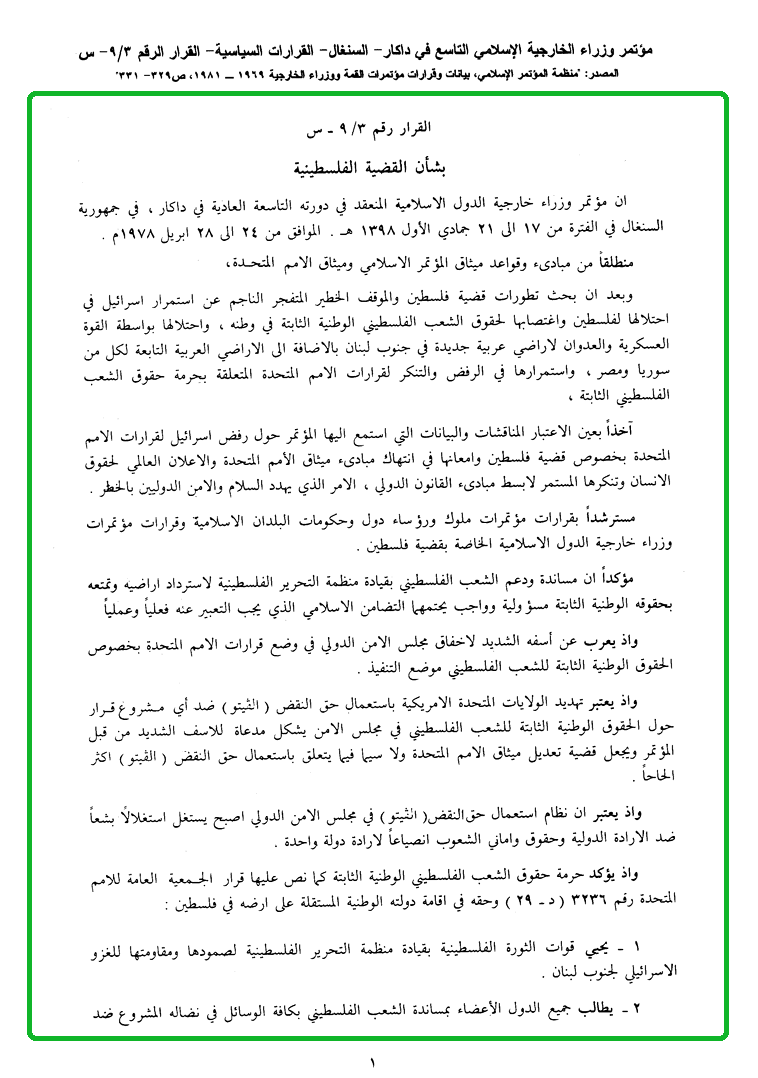 مؤتمر وزراء الخارجية الإسلامي التاسع في داكار- السنغال- القرارات السياسية- القرار الرقم ٩/٣- س
المصدر: "منظمة المؤتمر الإسلامي، بيانات وقرارات مؤتمرات القمة ووزراء الخارجية ١٩٦٩ ــ ١٩٨١، ص٣٢٩- ٣٣١"
القرار رقم ٩/٣ - س
بشأن القضية الفلسطينية
ان مؤتمر وزراء خارجية الدول الاسلامية المنعقد في دورته التاسعة العادية في داكار ، في جمهورية
السنغال في الفترة من ١٧ الى ٢١ جمادي الأول ١٣٩٨ هـ . الموافق من ٢٤ الى ٢٨ ابريل ١٩٧٨م .
منطلقاً من مبادىء وقواعد ميثاق المؤتمر الاسلامي وميثاق الامم المتحـدة،
وبعد ان بحث تطورات قضية فلسطين والموقف الخطير المتفجر الناجم عن استمرار اسرائيل في
احتلالها لفلسطين واغتصابها لحقوق الشعب الفلسطيني الوطنية الثابتة في وطنه ، واحتلالها بواسطة القوة
العسكرية والعدوان لاراضي عربية جديدة في جنوب لبنان بالاضافة الى الاراضي العربية التابعة لكل من
سوريا ومصر ، واستمرارها في الرفض والتنكر لقرارات الامم المتحدة المتعلقة بحرمة حقوق الشعب
الفلسطيني الثابتة ،
آخذاً بعين الاعتبار المناقشات والبيانات التي استمع اليها المؤتمر حول رفض اسرائيل لقرارات الامم
المتحدة بخصوص قضية فلسطين وامعانها في انتهاك مبادىء ميثاق الأمم المتحدة والاعلان العالمي لحقوق
الانسان وتنكرها المستمر لابسط مبادىء القانون الدولي ، الامر الذي يهدد السلام والامن الدوليين بالخطر .
مسترشداً بقرارات مؤتمرات ملوك ورؤساء دول وحكومات البلدان الاسلامية وقرارات مؤتمرات
وزراء خارجية الدول الاسلامية الخاصة بقضية فلسطين .
مؤكداً ان مساندة ودعم الشعب الفلسطيني بقيادة منظمة التحرير الفلسطينية لاسترداد اراضيه وتمتعه
بحقوقه الوطنية الثابتة مسؤولية وواجب يحتمهما التضامن الاسلامي الذي يجب التعبير عنه فعلياً وعملياً
واذ يعرب عن أسفه الشديد لاخفاق مجلس الامن الدولي في وضع قرارات الامم المتحدة بخصوص
الحقوق الوطنية الثابتة للشعب الفلسطيني موضع التنفيذ .
واذ يعتبر تهديد الولايات المتحدة الامريكية باستعمال حق النقض ( الڤيتو ) ضد أي مـشروع قـرار
حول الحقوق الوطنية الثابتة للشعب الفلسطيني في مجلس الامن يشكل مدعاة للاسف الشديد من قبل
المؤتمر ويجعل قضية تعديل ميثاق الامم المتحدة ولا سيما فيما يتعلق باستعمال حق النقض ( الڤيتو ) اكثر
الحاحاً .
واذ يعتبر ان نظام استعمال حق النقض ( الڤيتو ) في مجلس الامن الدولي اصبح يستغل استغلالاً بشعاً
ضد الارادة الدولية وحقوق واماني الشعوب انصياعاً لارادة دولة واحدة .
واذ يؤكد حرمة حقوق الشعب الفلسطيني الوطنية الثابتة كما نص عليها قرار الجـمعية العامة للامم
المتحدة رقم ٣٢٣٦ ( د - ٢٩ ) وحقه في اقامة دولته الوطنية المستقلة على ارضه في فلسطين :
١ - يحيي قوات الثورة الفلسطينية بقيادة منظمة التحرير الفلسطينية لصمودها ومقاومتها للغزو
الاسرائيلي لجنوب لبنان .
٢ - يطالب جميع الدول الأعضاء بمساندة الشعب الفلسطيني بكافة الوسائل في نضاله المشروع ضد
١